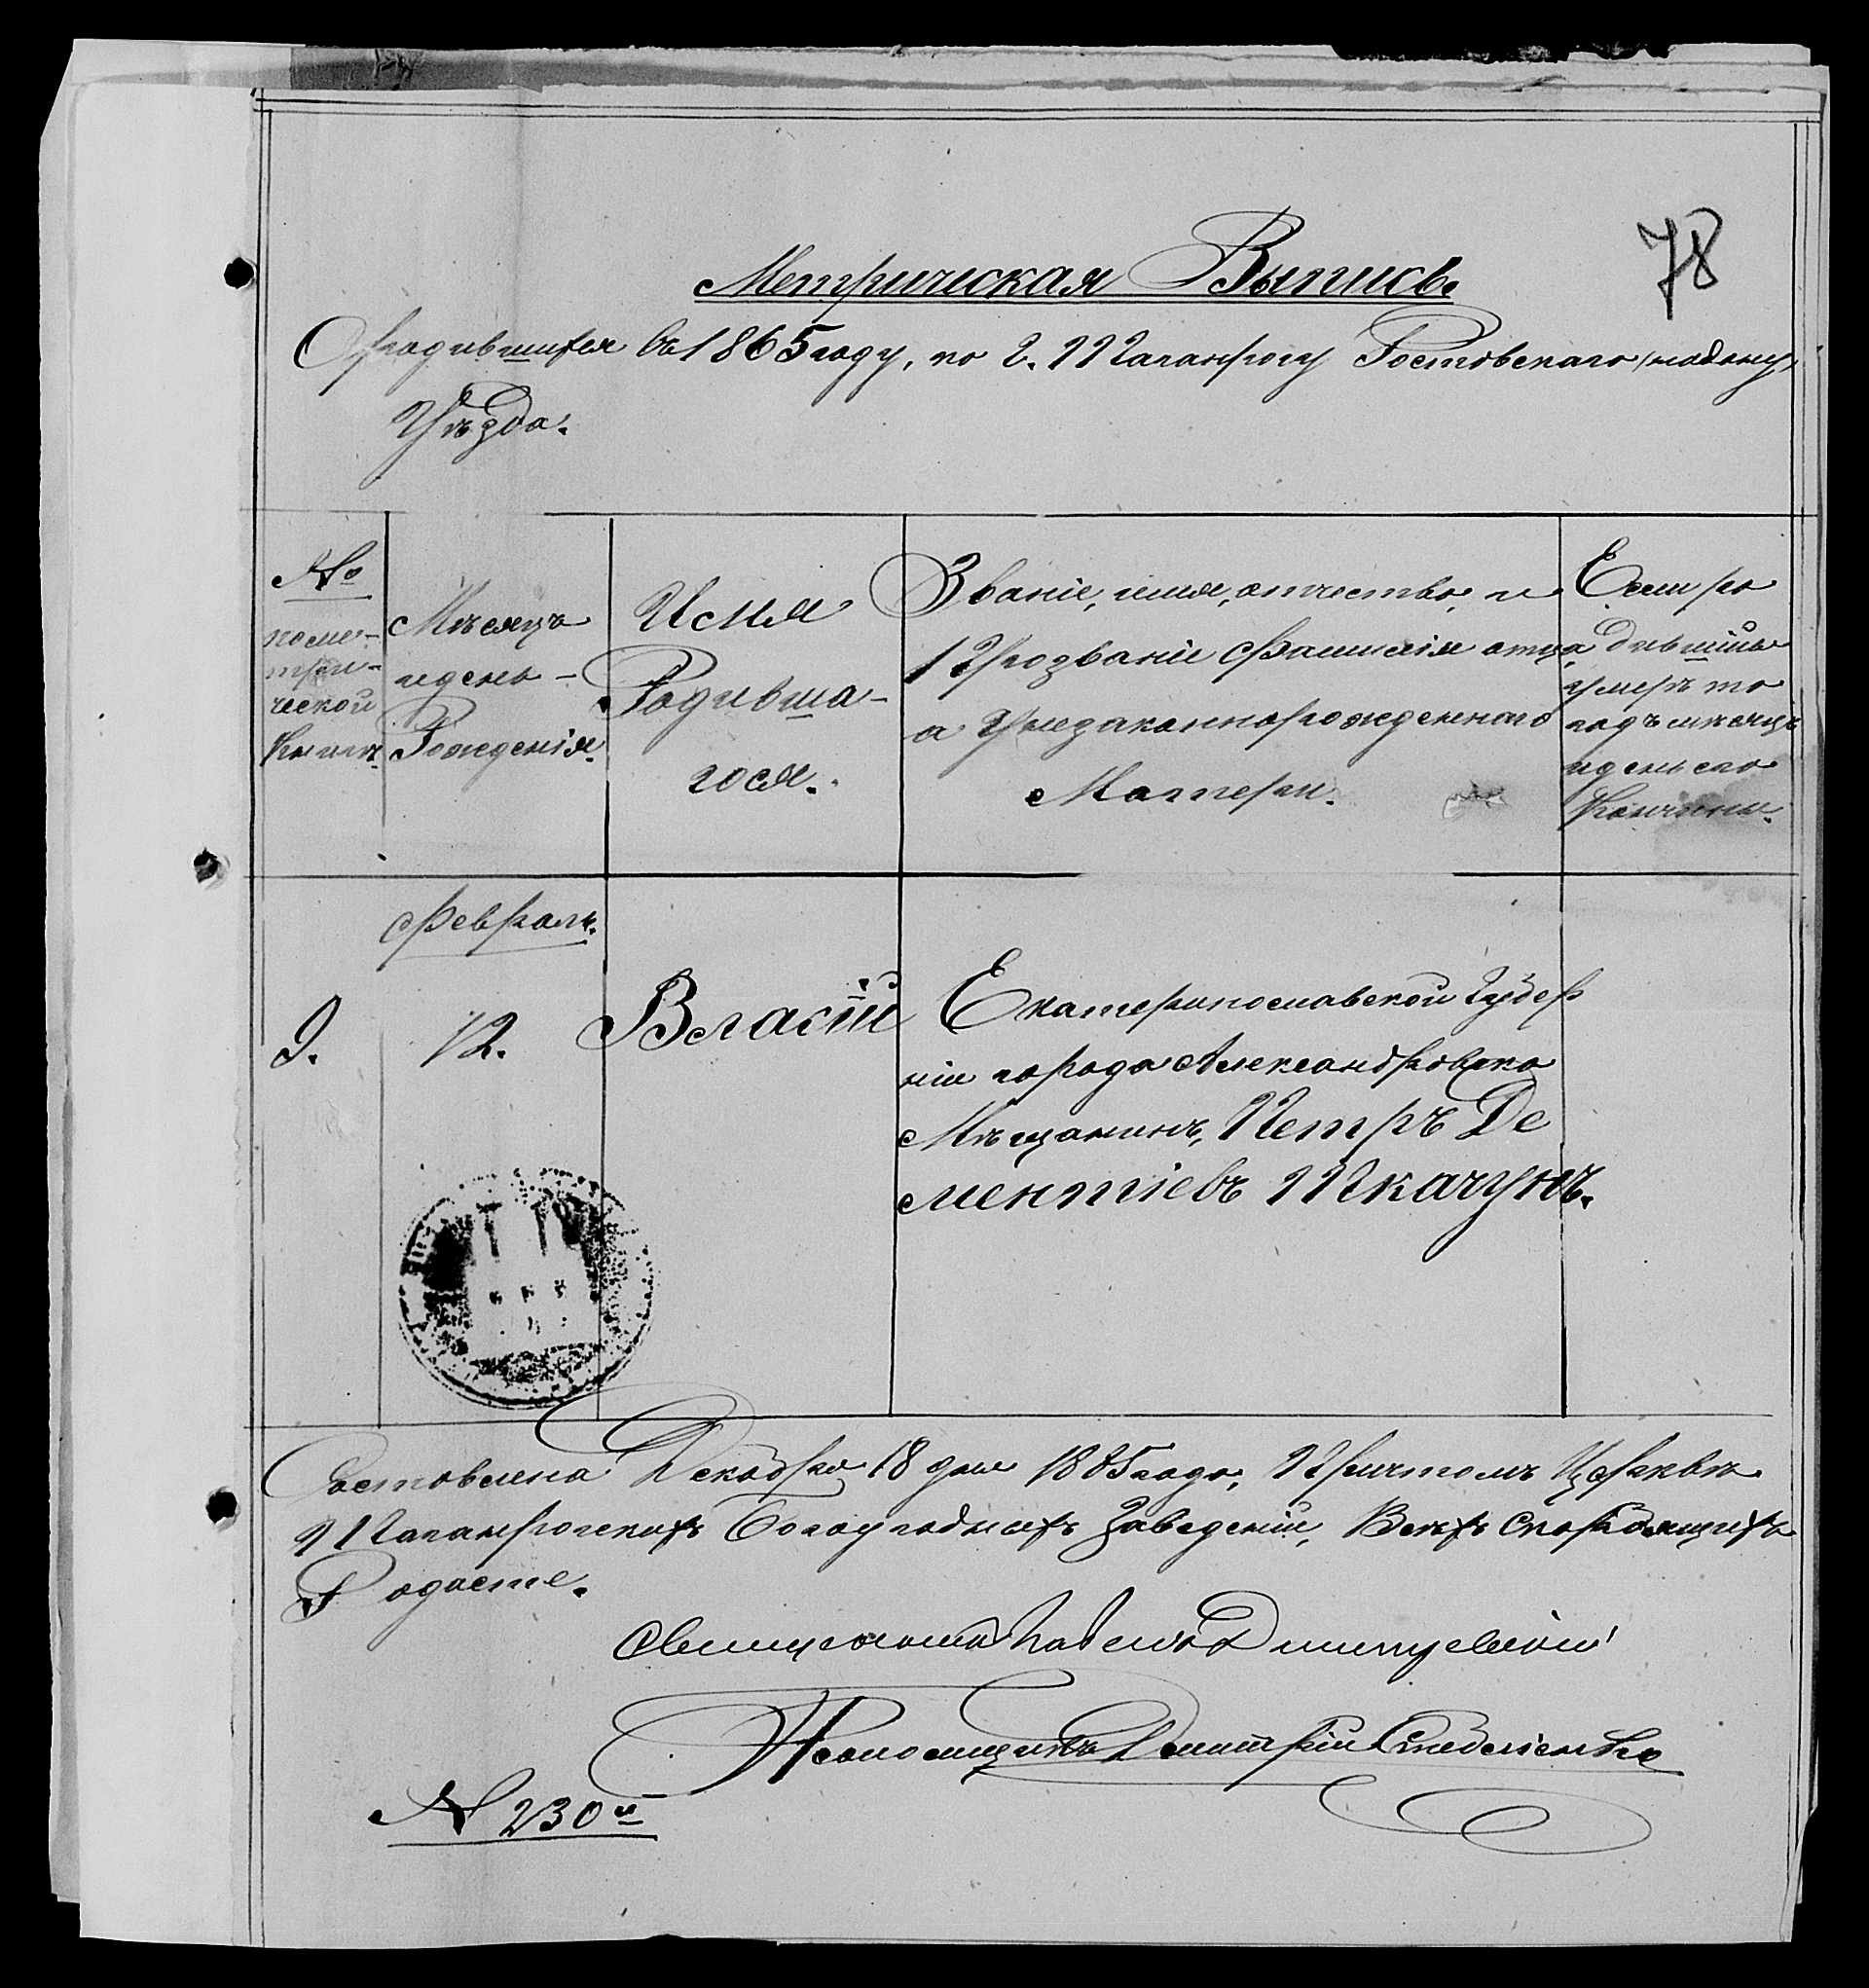 78
Метрическая Выпись.
О родившихся въ 1865 году, по г. Таганрогу Ростовскаго (на дону)
Уѣзда.
№
по ме-
три-
ческой
Книгѣ.
Мѣсяцъ
и день
Рожденія.
Имя
Родивша-
гося.
Званіе, имя, отчество, и
Прозваніе Фамилія отца,
а у незаконнорожденнаго
Матери.
Если ро
дившійся
умеръ то
годъ мѣсяцъ
и день его
Кончины.
Февраль.
9.
12.
Власій
Екатеринославской Губер
ніи города Александровска
Мѣщанинъ, Петръ Де
ментіевъ Ткачунъ.
Составлена Декабря 18 дня 1885 года, Причтомъ Церкви
Таганрогскихъ Богоугодныхъ Заведеній, Всѣхъ Скорбящихъ
Радосте.
Священникъ Павелъ
Псаломщикъ Дмитрій
№ 230й